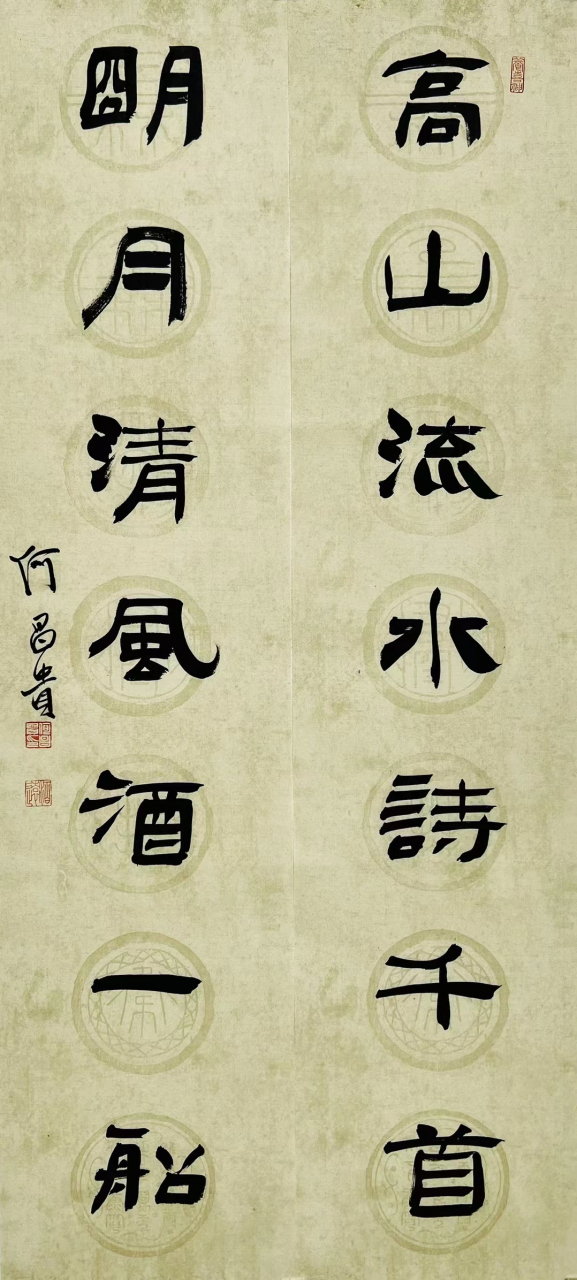 高山流水詩千首
明月清風酒一船
何昌貴